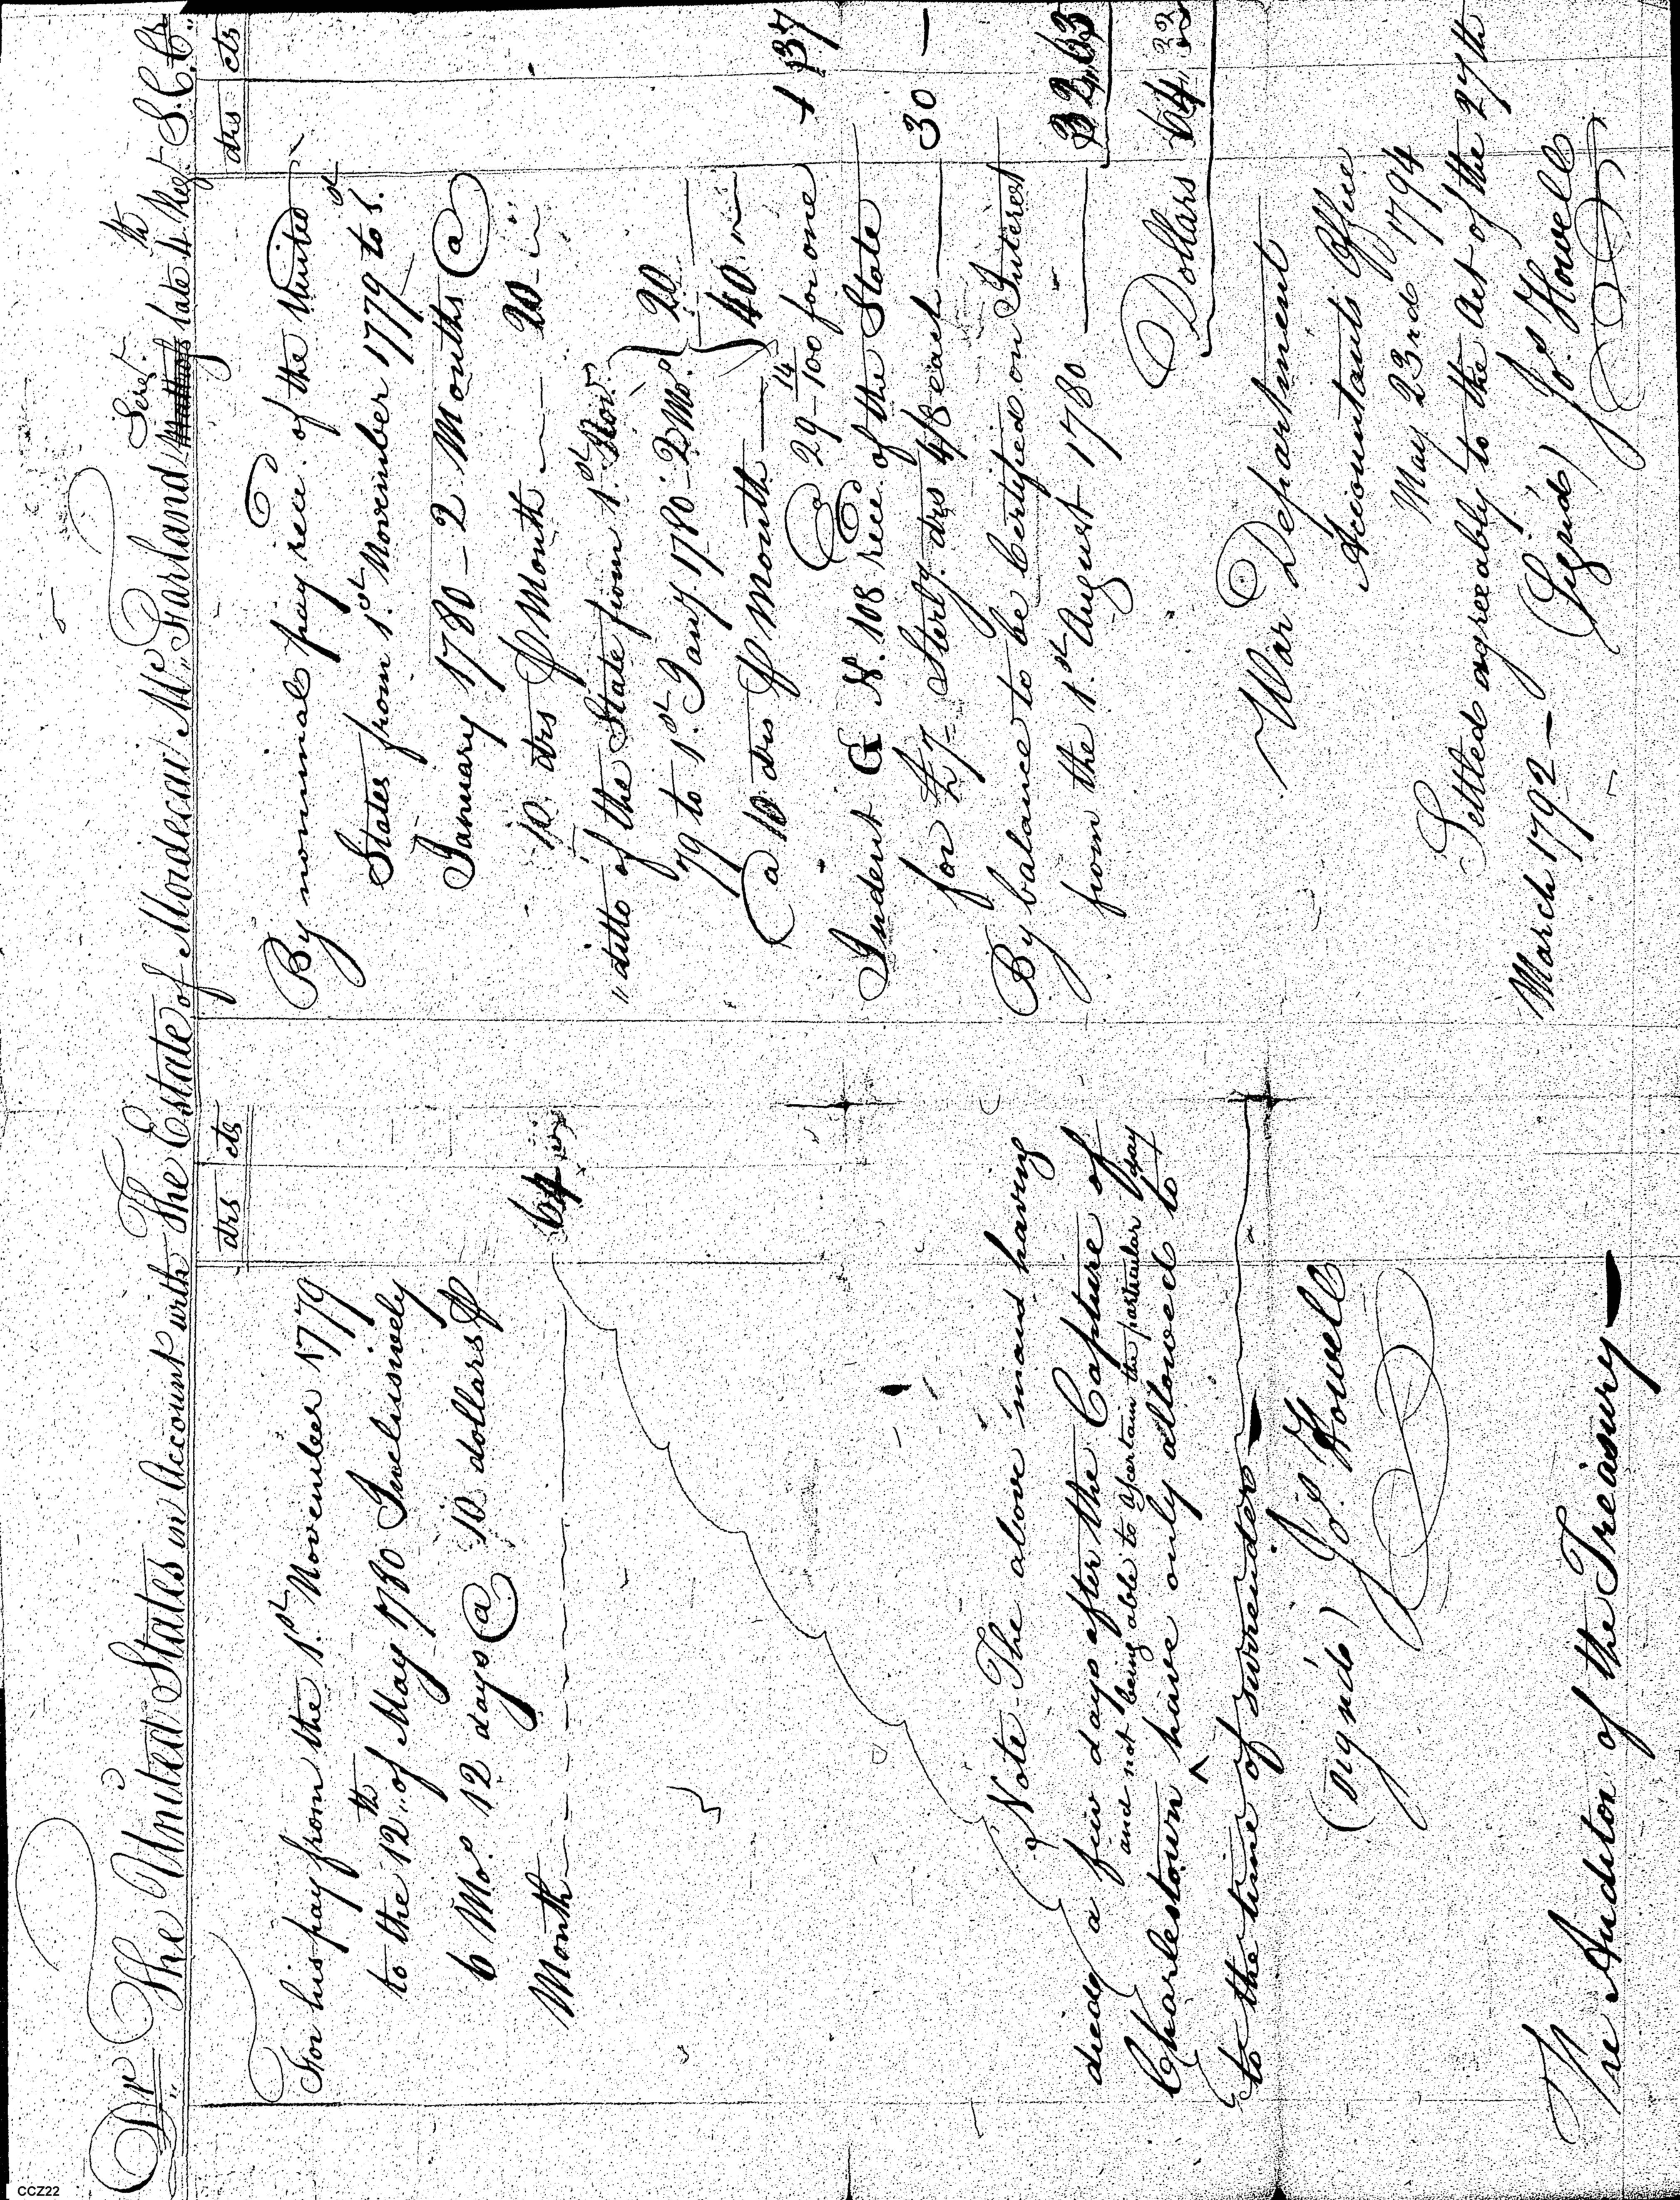 Dr. The United States in Account with The Estate of Mordecai Mc.Farland Serjt. late 4th Regt. S.C. Cr.
drs cts
For his pay from the 1st November 1779
to the 12th of May 1780 Inclusively
6 Mos. 12 days @ 10 dollars ⅌
Month 64
Note The above man having
died a few days after the Capture of
and not being able to ascertain the particular day
Charlestown ^ have only allowed to
to the time of surrender
(sign'd) Jos. Howell
The Auditor of the Treasury
drs cts
By nominal pay rece. of the United
States from 1st November 1779 to 1st
January 1780 – 2 Months @
10 drs ⅌ Month 20
" ditto of the State from 1st Nov.
79 to 1st Jany 1780 – 2 Mo. 20
@ 10 drs ⅌ Month 40
@ 29 14/100 for one 1 37
Indent G N. 108 rece. of the State
for £7 Sterlg. drs 4/8 each 30 —
By balance to be Certified on Interest
from the 1st August 1780 32,,63
Dollars 64
War Department
Accountants Office
May 23rd 1794
Settled agreeably to the Act of the 27th
March 1792 – (Sign'd) Jos. Howell
CCZ22